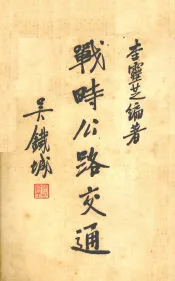 李靈芝編著
戰時公路交通
吳鐵城